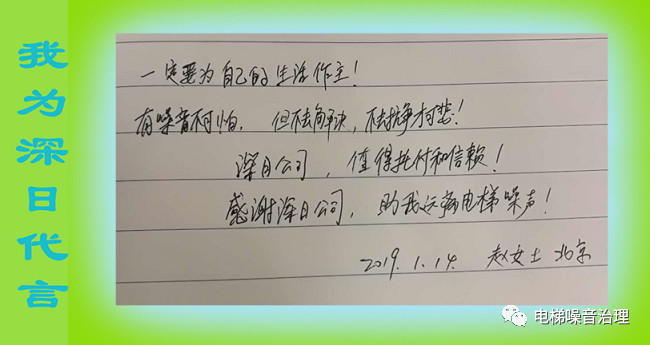 我为深日代言
一定要为自己的生活作主！
有噪音不可怕，但不去解决，不去抗争才可悲！
深日公司，值得托付和信赖！
感谢深日公司，助我远离电梯噪声！
2019.1.14. 赵女士 北京
电梯噪音治理